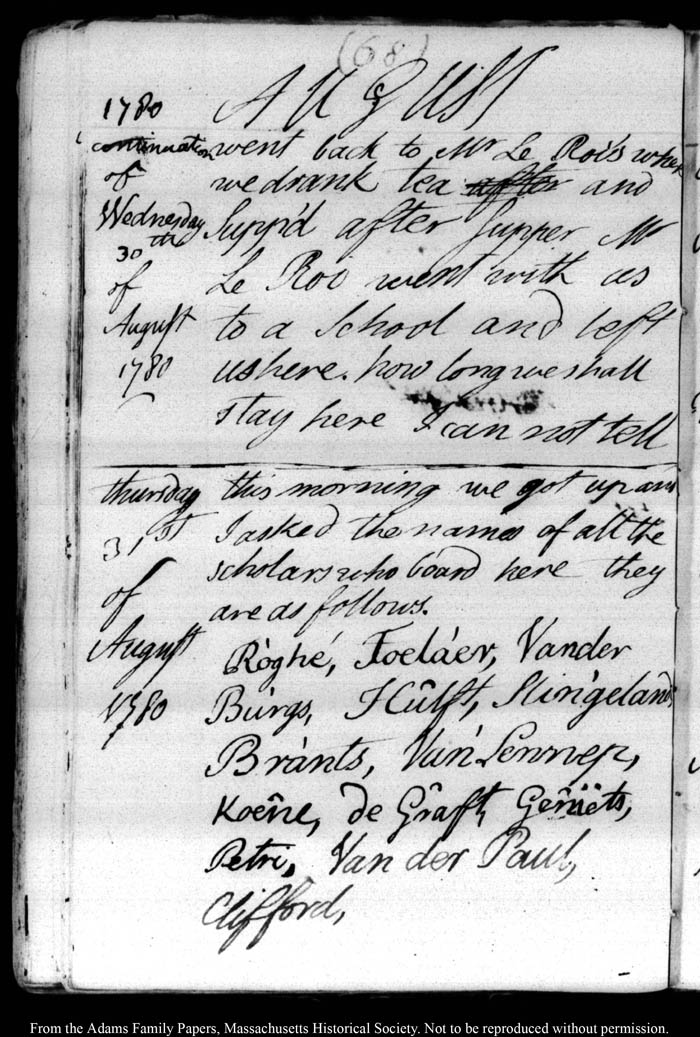 (68)
1780 AUGUST
continuation went back to Mr Le Roi's where
of we drank tea after and
Wednesday Supp'd after Supper Mr
30th Le Roi went with us
of to a School and left
August us here. how long we shall
1780 stay here I can not tell
thursday this morning we got up and
31st I asked the names of all the
of scholars who board here they
are as follows.
August Ròghé, Foeláer, Vander
1780 Búrgs, HÛlft, Slingelands
Brànts, Ván Lennep,
Koêne, de Grâft, Gênïets,
Petri, Van der Paul,
Clifford,
From the Adams Family Papers, Massachusetts Historical Society. Not to be reproduced without permission.